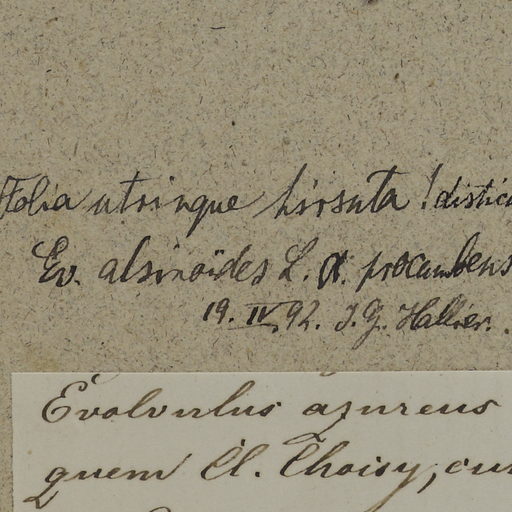 Folia utrinque hirsuta! distic
Ev. alsinoïdes L. α. procumbens
19. IV. 92. J. G. Hallier.
Evolvulus azureus
quem Cl. Choisy, cum